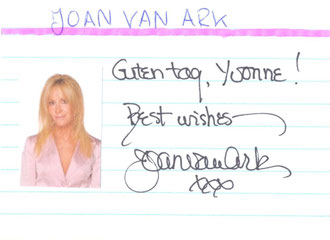 JOAN VAN ARK
Guten tag, Yvonne!
Best wishes
Joan Van Ark
xxx